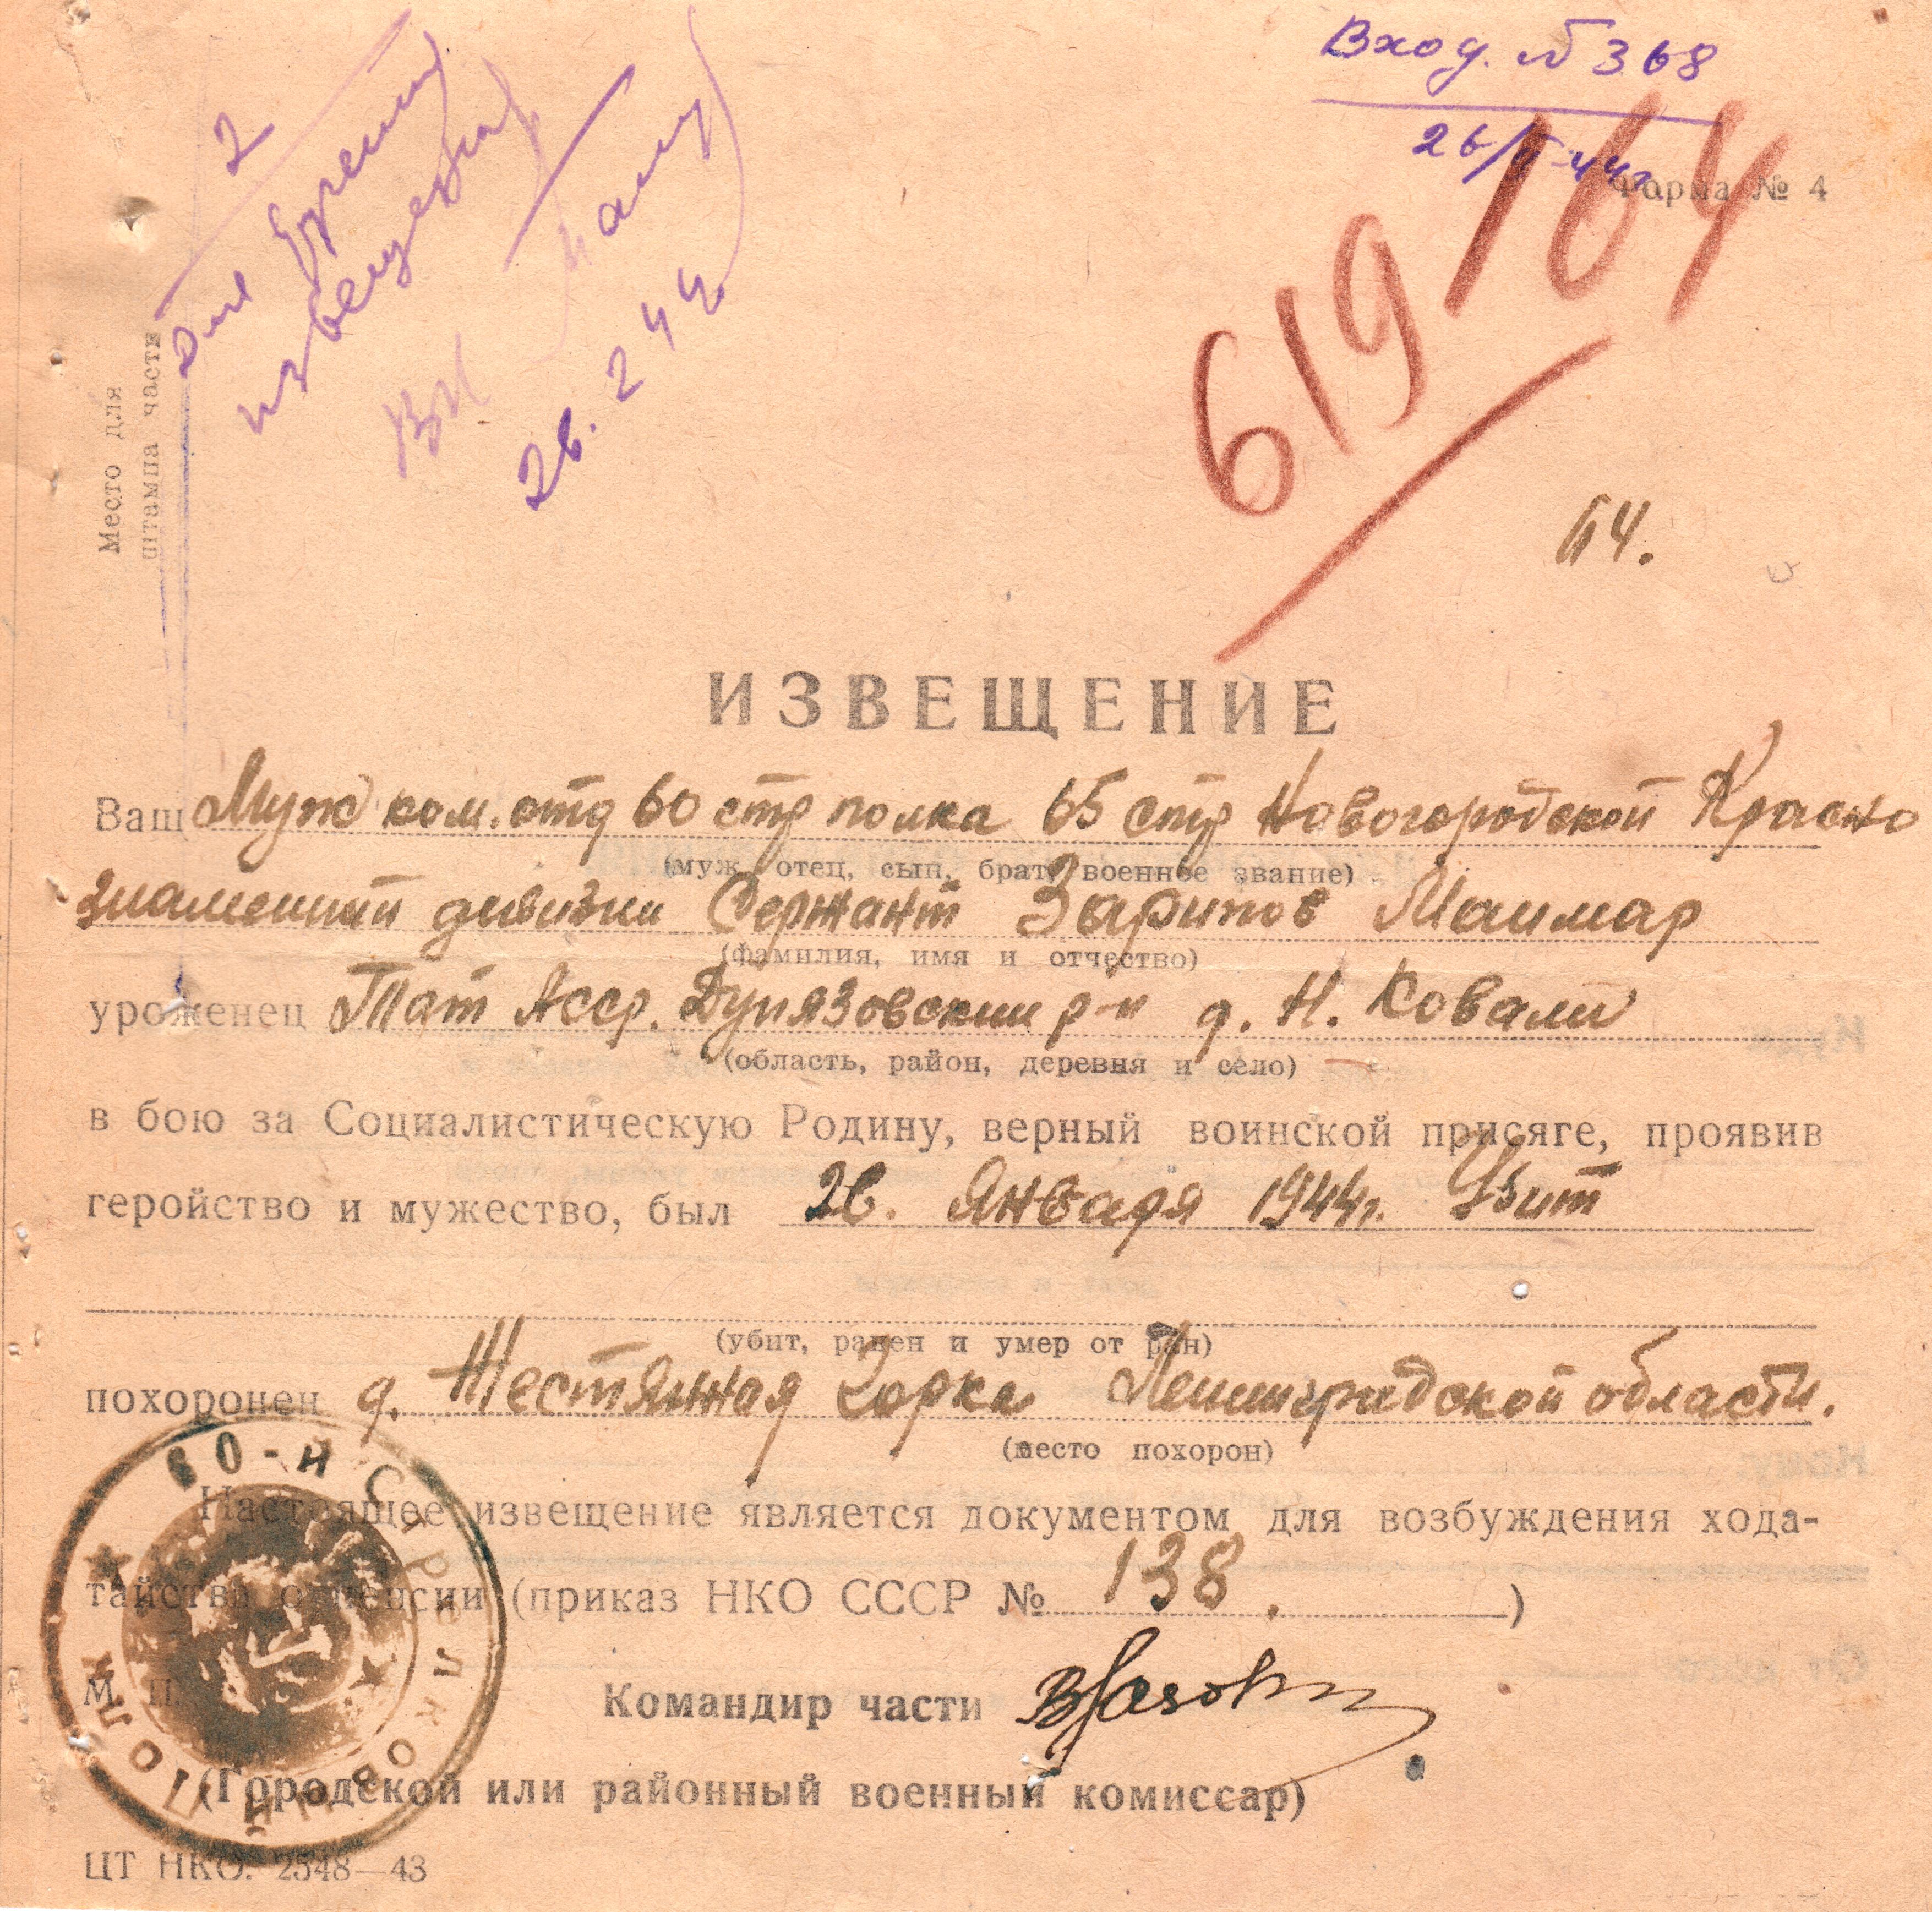 Вход. № 368
26/II-44г
Форма № 4
619164
64.
2
извещения
26.2 44
Место для
штампа части
ИЗВЕЩЕНИЕ
Ваш Муж ком. отд 60 стр полка 65 стр Новогородской Красно
(муж, отец, сын, брат, военное звание)
знаменный дивизии Сержант Зарипов Маимар
(фамилия, имя и отчество)
уроженец Тат Асср. Дубязовский р-н д. Н. Ковали
(область, район, деревня и село)
в бою за Социалистическую Родину, верный воинской присяге, проявив
геройство и мужество, был 26. Января 1944г. Убит
(убит, ранен и умер от ран)
похоронен д. Жестянная Горка Ленинградской области.
(место похорон)
Настоящее извещение является документом для возбуждения хода-
тайства о пенсии (приказ НКО СССР № 138. )
М. П.
Командир части
(Городской или районный военный комиссар)
60-Й СТРЕЛКОВЫЙ ПОЛК
ЦТ НКО. 2548—43